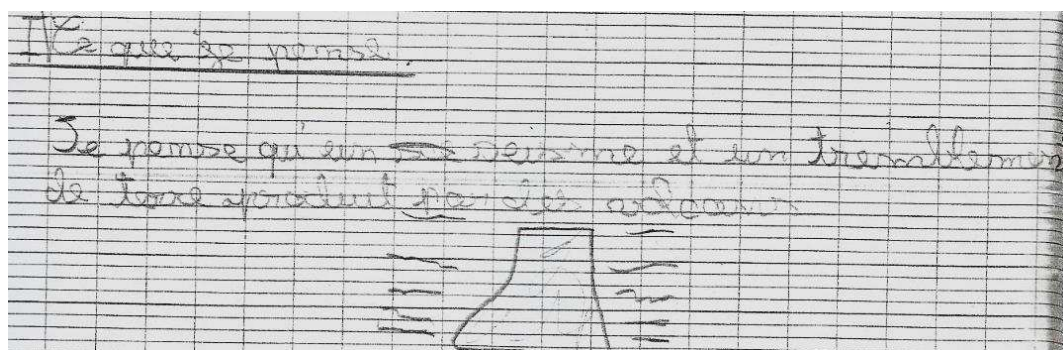 I Ce que je pense.
Je pense qu'un seisme et un tremblement
de terre produit par des volcans